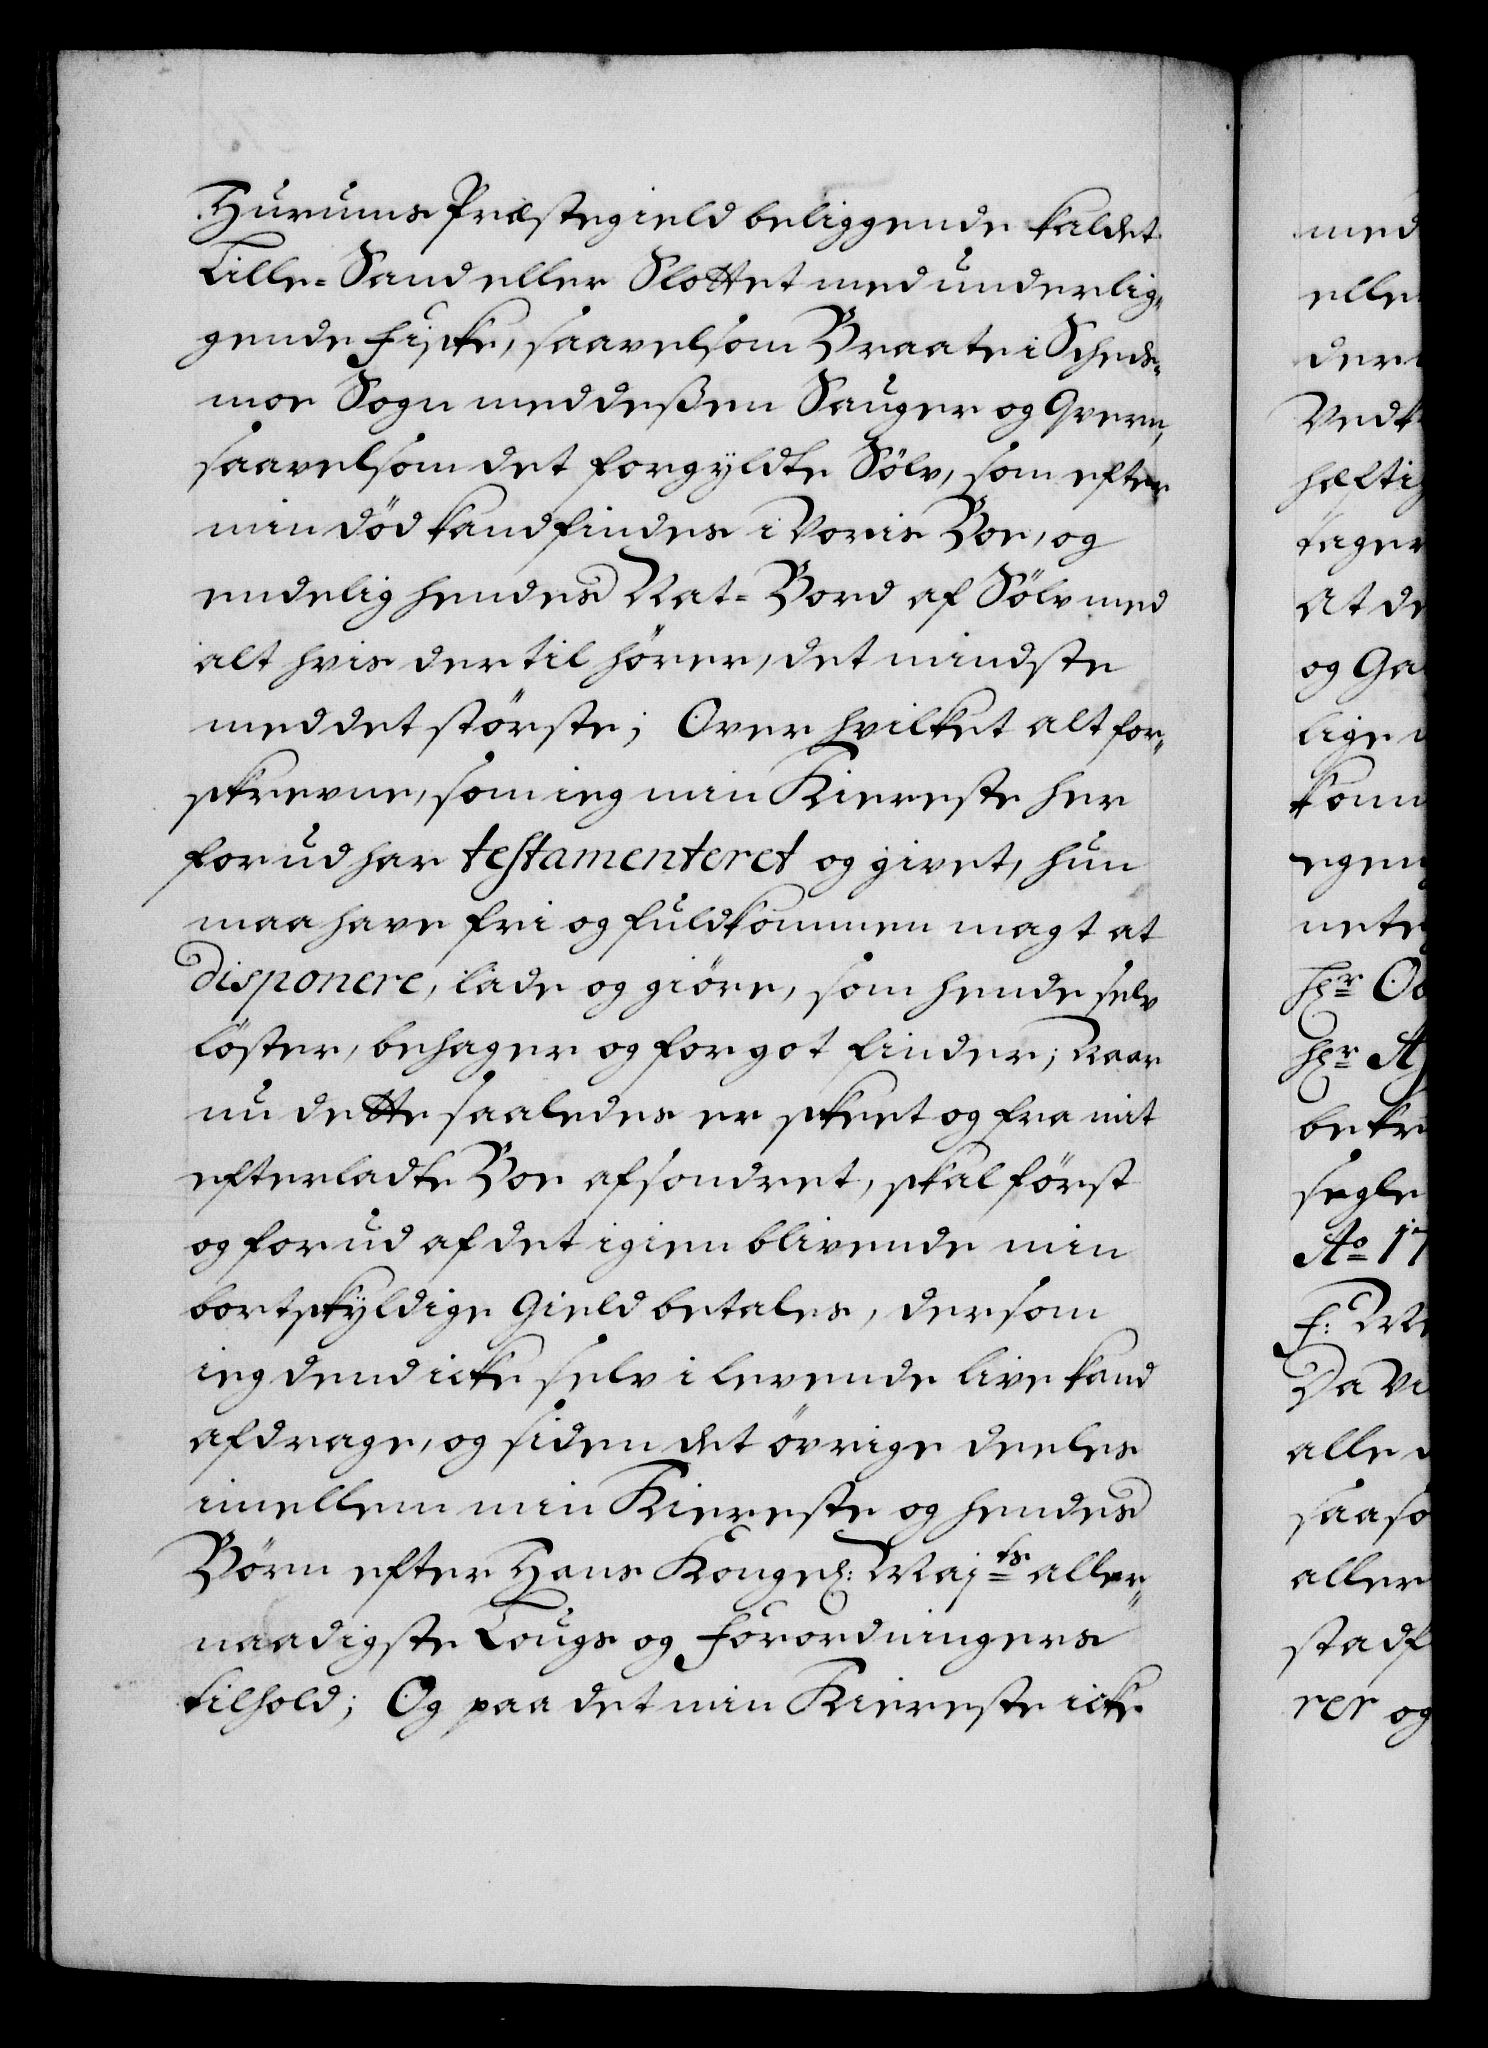 Hurums Præstegield beliggende kaldet
Lille-Sand eller Slottet med underlig-
gende Fiske, saavelsom Braate i Scheds-
moe Sogn med deßen Sauger og Qvern,
saavelsom det forgyldte Sölv, som efter
min död kand findes i Voris Boe, og
endelig hendes Nat-Bord af Sölv med
alt hvis dertil hörer, det mindste
med det störste; Over hvilket alt for-
skrevne, som ieg min Kiereste her
forud har testamenteret og givet, hun
maa have fri og fuldkommen magt at
disponere, lade og giöre, som hende selv
löster, behager og for got finder; Naar
nu dette saaledes er skeet og fra mit
efterladte Boe afsondret, skal först
og forud af det igienblivende min
bortskyldige Gield betales, dersom
ieg dend icke selv i levende live kand
afdrage, og siden det övrige deeles
imellem min Kiereste og hendes
Börn efter Hans Kongel: Majts aller-
naadigste Lougs og Forordningers
tilhold; Og paa det min Kiereste icke
med
elle
der
Vedk
hefti
tager
at de
og Ga
lige
komm
egen
nete
Hr Ob
Hr A
bekre
segle
Ao 17
Da Vi
alle
saaso
aller
stadf
rer og